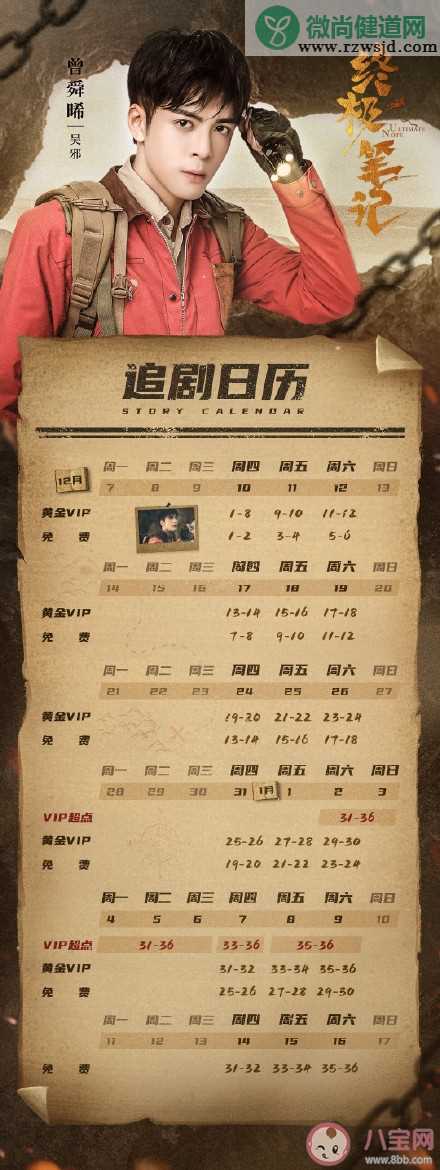 微尚健道网
www.rzwsjd.com
曾舜晞 吴邪
终极笔记
ULTIMATE NOTE
追剧日历
STORY CALENDAR
12月 周一 周二 周三 周四 周五 周六 周日
7 8 9 10 11 12 13
黄金VIP 1-8 9-10 11-12
免费 1-2 3-4 5-6
周一 周二 周三 周四 周五 周六 周日
14 15 16 17 18 19 20
黄金VIP 13-14 15-16 17-18
免费 7-8 9-10 11-12
周一 周二 周三 周四 周五 周六 周日
21 22 23 24 25 26 27
黄金VIP 19-20 21-22 23-24
免费 13-14 15-16 17-18
周一 周二 周三 周四 周五 周六 周日
28 29 30 31 1月 1 2 3
VIP超点 31-36
黄金VIP 25-26 27-28 29-30
免费 19-20 21-22 23-24
周一 周二 周三 周四 周五 周六 周日
4 5 6 7 8 9 10
VIP超点 31-36 33-36 35-36
黄金VIP 31-32 33-34 35-36
免费 25-26 27-28 29-30
周一 周二 周三 周四 周五 周六 周日
11 12 13 14 15 16 17
免费 31-32 33-34 35-36
八宝网
www.8bb.com